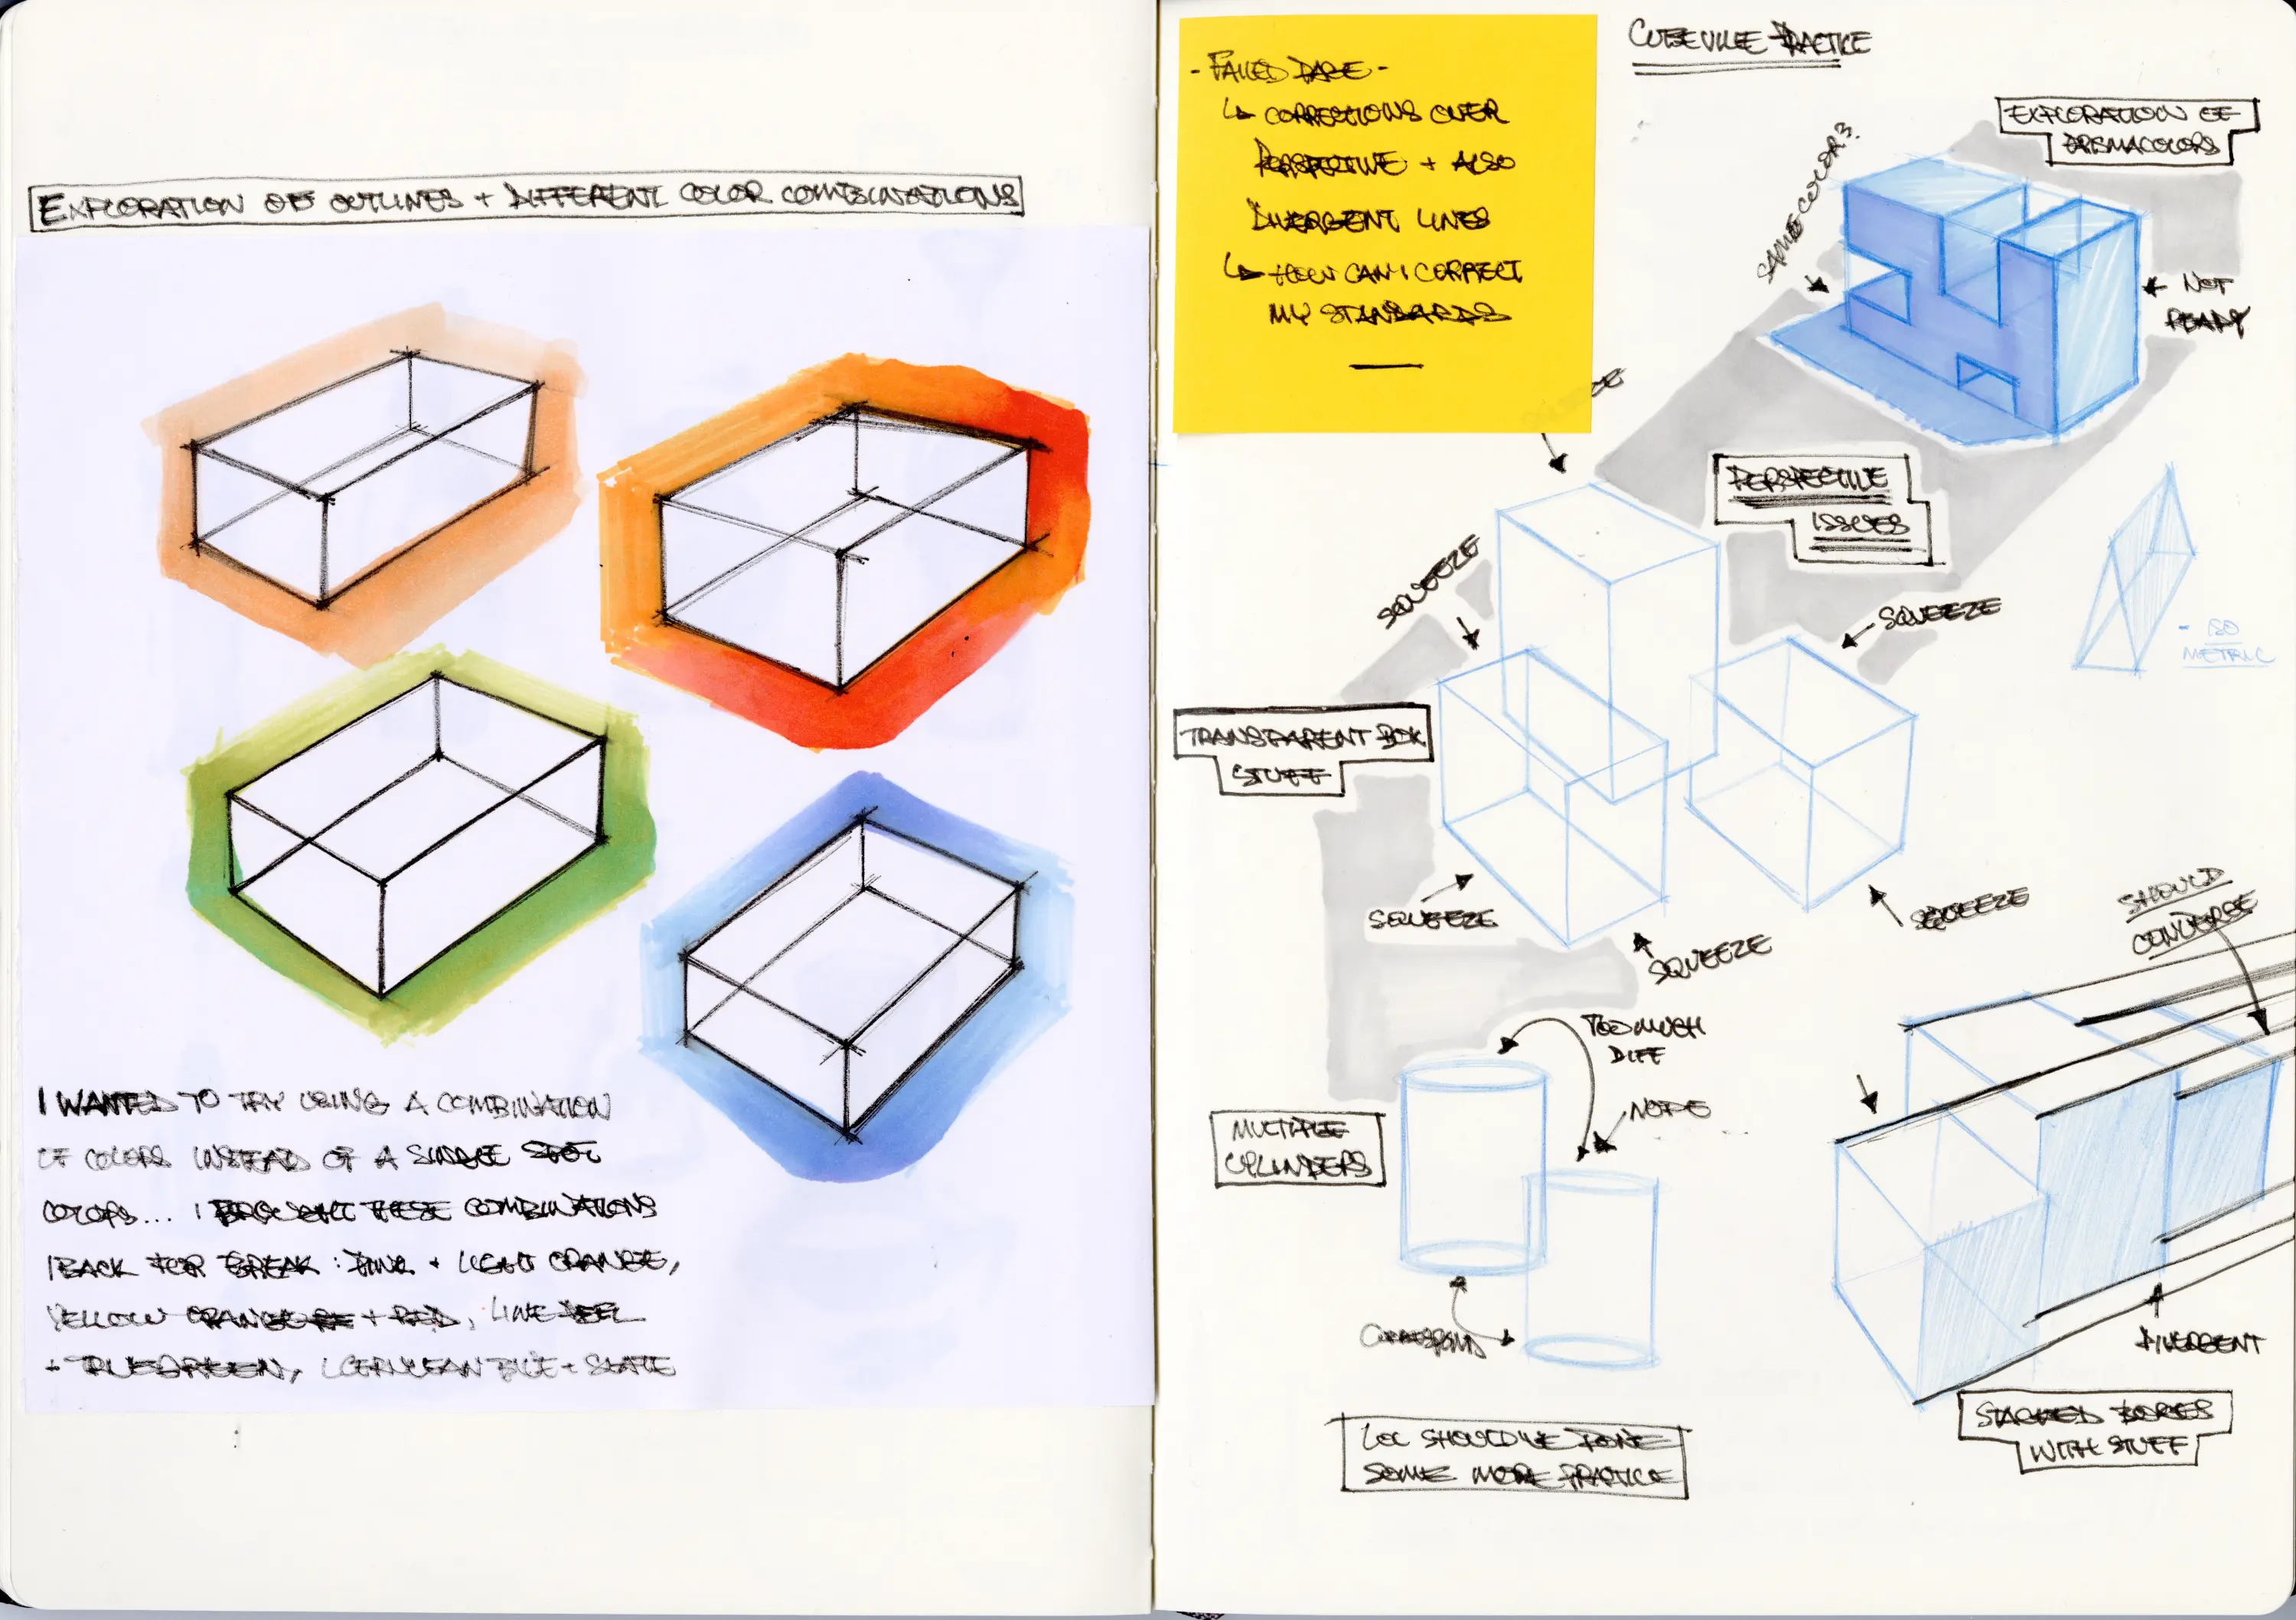 EXPLORATION OF OUTLINES + DIFFERENT COLOR COMBINATIONS
I WANTED TO TRY USING A COMBINATION
OF COLORS INSTEAD OF A SINGLE SPOT
COLORS... I BROUGHT THESE COMBINATIONS
BACK FOR BREAK: PINK + LIGHT ORANGE,
YELLOW ORANGE + RED, LIME PEEL
+ TRUE GREEN, CERULEAN BLUE + SLATE
- FAILED PAGE -
↳ CORRECTIONS OVER
PERSPECTIVE + ALSO
DIVERGENT LINES
↳ HOW CAN I CORRECT
MY STANDARDS
CUBEVILLE PRACTICE
EXPLORATION OF
PRISMACOLORS
SAME COLOR?
NOT
READY
PERSPECTIVE
ISSUES
SQUEEZE
SQUEEZE
- ISO
METRIC
TRANSPARENT BOX
STUFF
SQUEEZE
SQUEEZE
SQUEEZE
SHOULD
CONVERGE
TOO MUCH
DIFF
NOPE
MULTIPLE
CYLINDERS
CORRESPOND
DIVERGENT
STACKED BOXES
WITH STUFF
SHOULD'VE DONE
SOME MORE PRACTICE